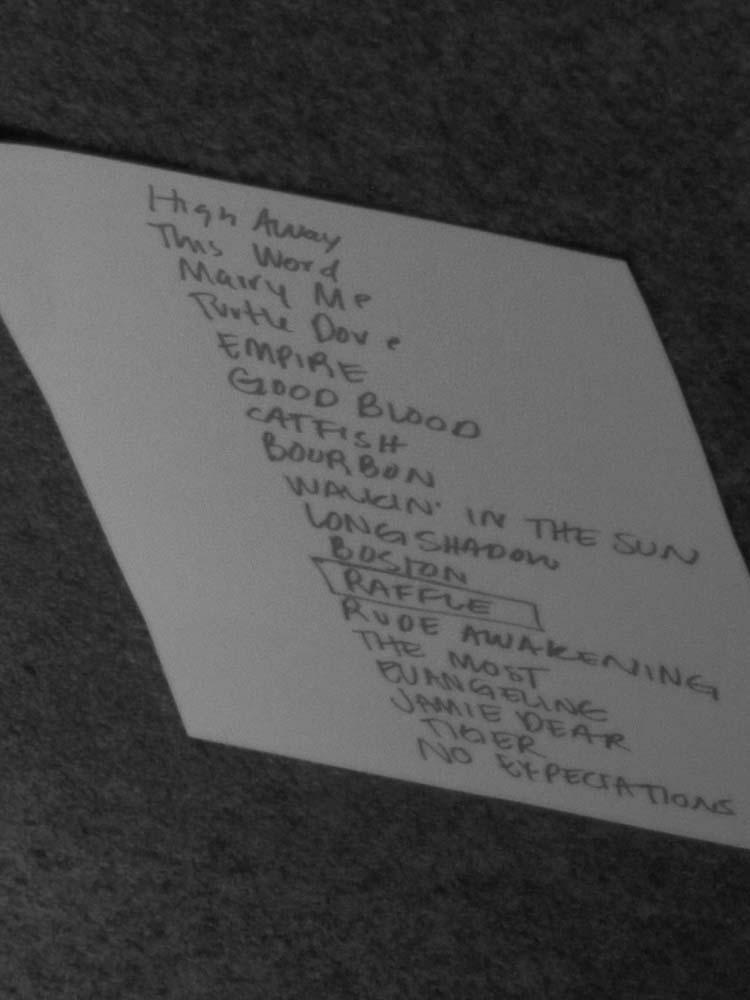 High Away
This Word
Marry Me
Turtle Dove
EMPIRE
GOOD BLOOD
CATFISH
BOURBON
WALKIN' IN THE SUN
LONG SHADOW
BOSTON
RAFFLE
RUDE AWAKENING
THE MOST
EVANGELINE
JAMIE DEAR
TIGER
NO EXPECTATIONS